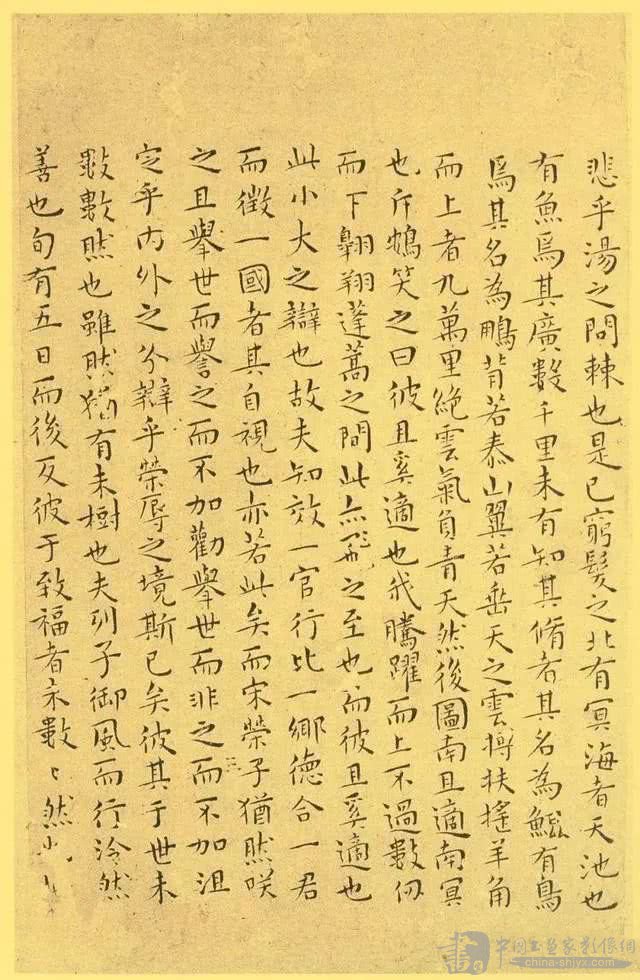 悲乎湯之問棘也是已窮髮之北有冥海者天池也
有魚焉其廣數千里未有知其脩者其名為鯤有鳥
焉其名為鵬背若泰山翼若垂天之雲摶扶搖羊角
而上者九萬里絕雲氣負青天然後圖南且適南冥
也斥鴳笑之曰彼且奚適也我騰躍而上不過數仞
而下翱翔蓬蒿之間此亦飛之至也而彼且奚適也
此小大之辯也故夫知效一官行比一鄉德合一君
而徵一國者其自視也亦若此矣而宋榮子猶然咲
之且舉世而譽之而不加勸舉世而非之而不加沮
定乎內外之分辯乎榮辱之境斯已矣彼其于世未
數數然也雖然猶有未樹也夫列子御風而行泠然
善也旬有五日而後反彼于致福者未數〻然
書
中國書畫家影像網
china-shjyx.com